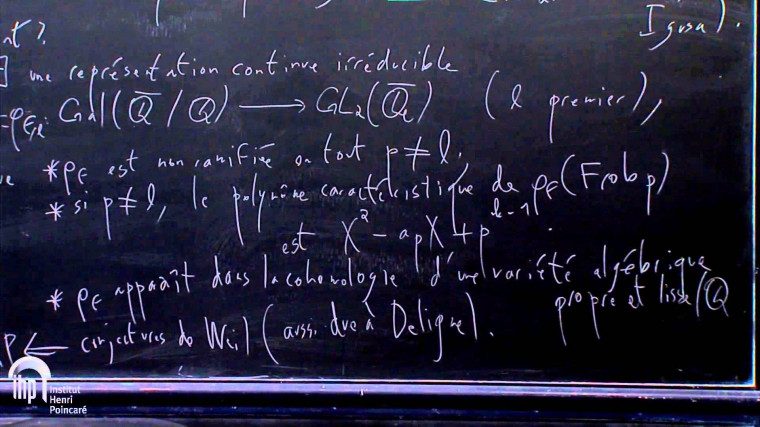 Igusa).
nt?
] une représentation continue irréductible
=ρ_{F,ℓ}: Gal(Q̅/Q) ⟶ GL₂(Q̅_ℓ) (ℓ premier),
* ρ_F est non ramifiée en tout p≠ℓ.
* si p≠ℓ, le polynôme caractéristique de ρ_F(Frob_p)
est X² - a_p X + p^{k-1}.
* ρ_F apparaît dans la cohomologie d'une variété algébrique
propre et lisse/Q
P ⟸ conjectures de Weil (aussi due à Deligne).
ihp
Institut
Henri
Poincaré